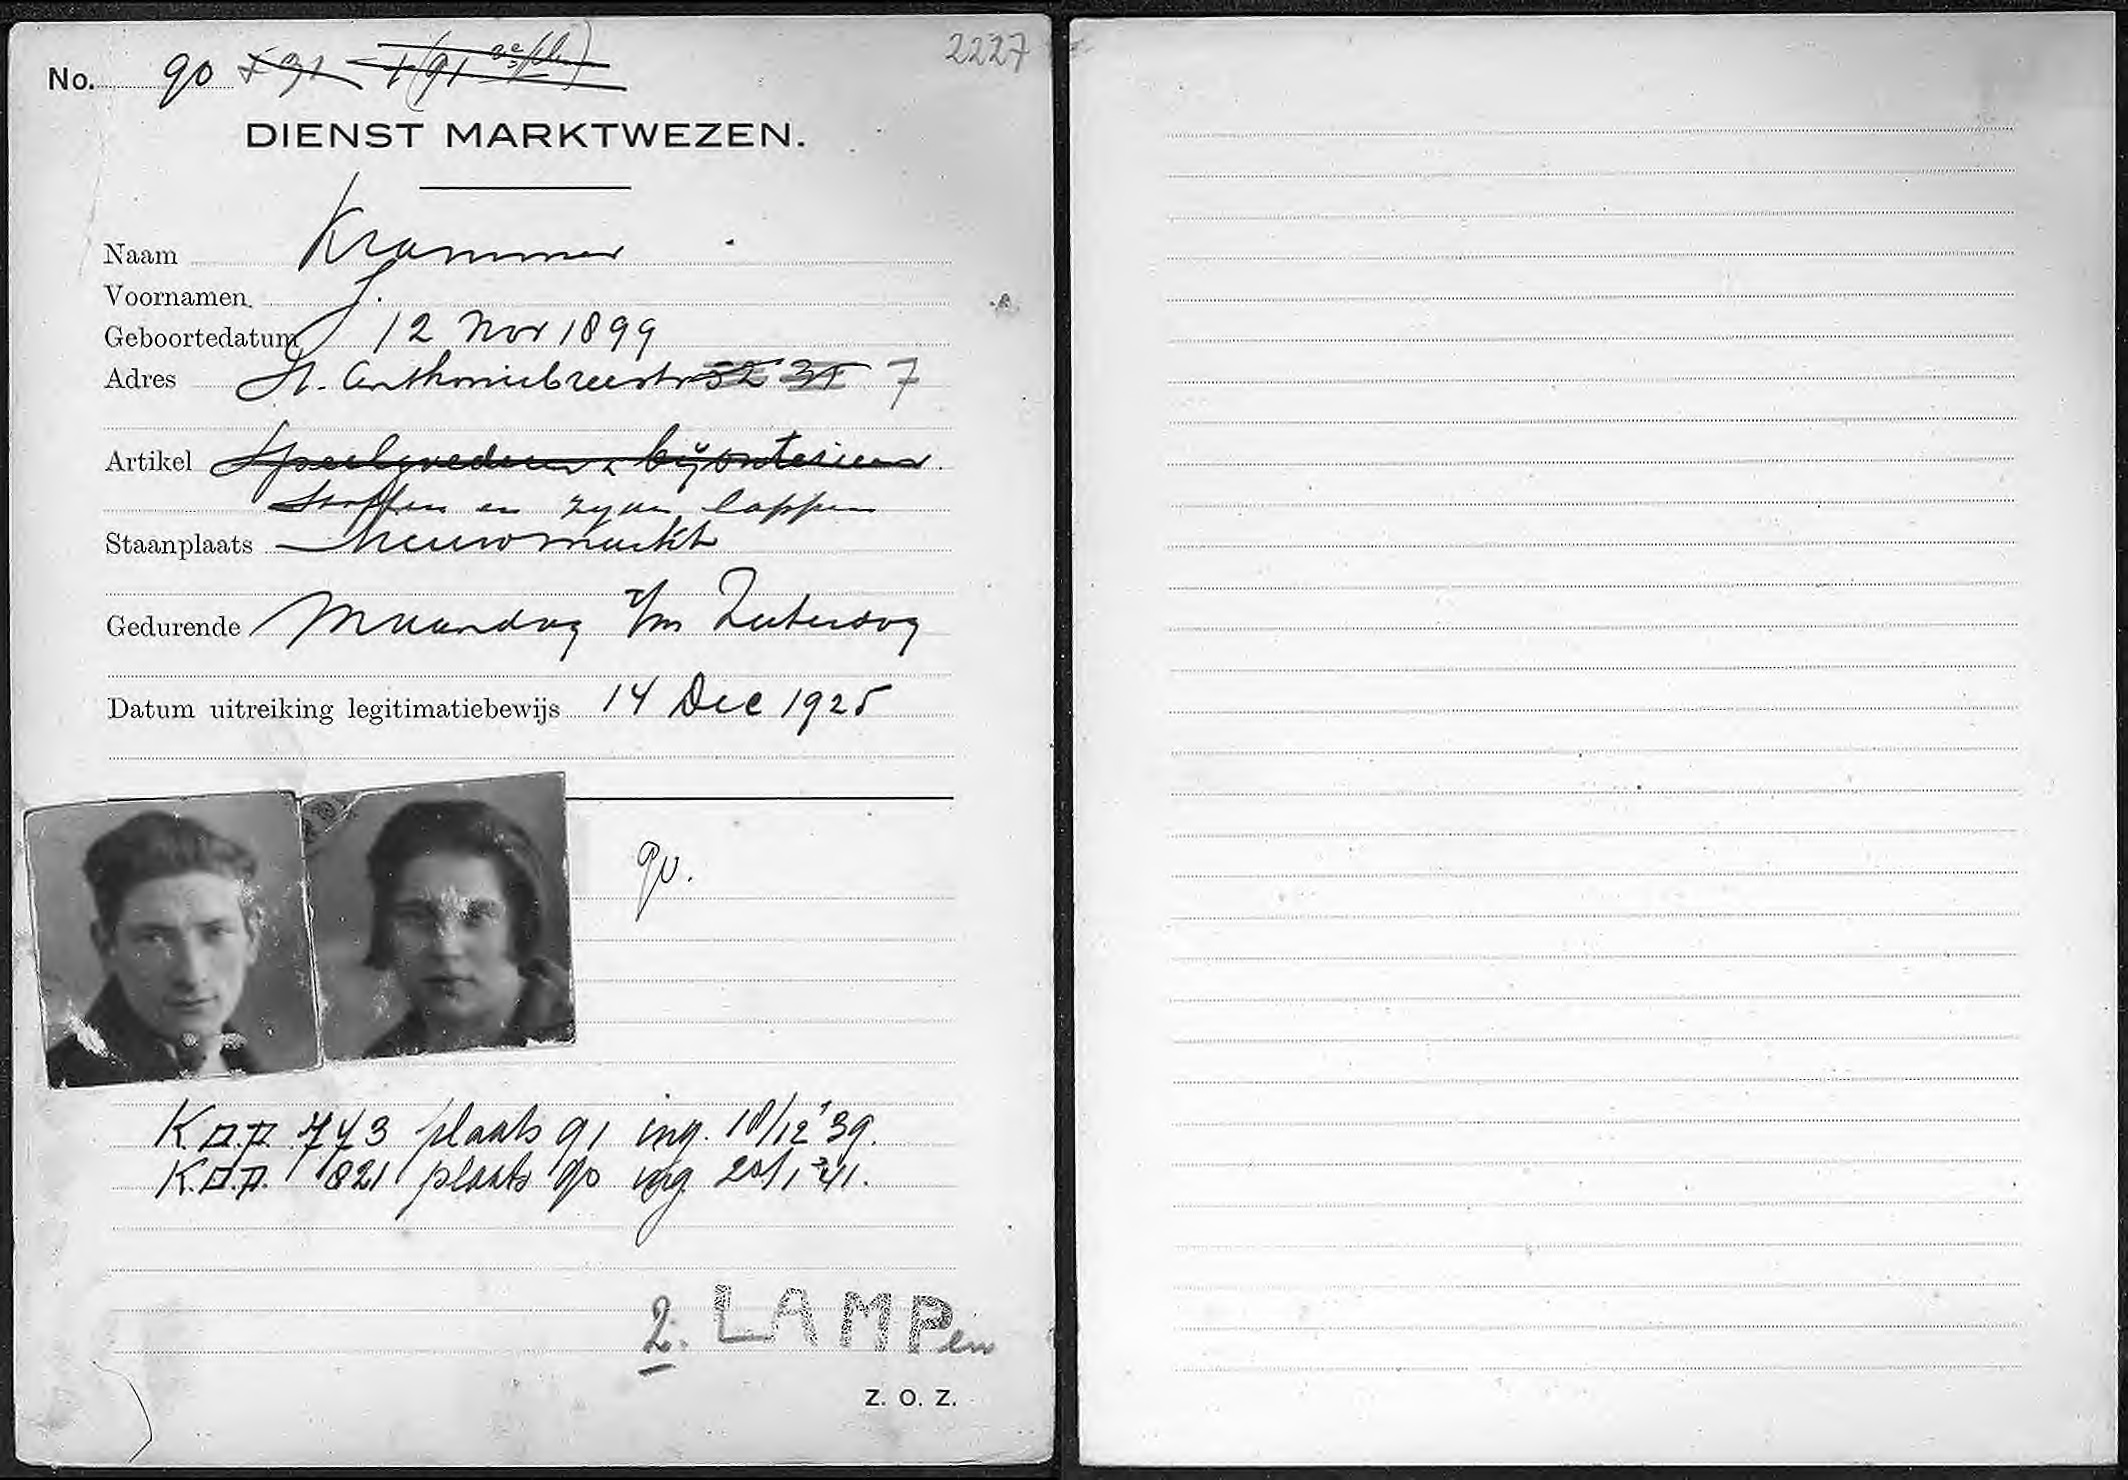 2227
No. 90 + 91 + (91
DIENST MARKTWEZEN.
Naam Krammer
Voornamen. J.
Geboortedatum 12 Nov 1899
Adres St. Anthoniebreestr 52 31 7
Artikel Speelgoederen & bijouterieen
Stoffen en zijden lappen
Staanplaats Nieuwmarkt
Gedurende Maandag t/m Zaterdag
Datum uitreiking legitimatiebewijs 14 Dec 1925
90.
743 plaats 91 ing. 18/12 '39.
821 plaats 90 ing. 20/1 '41.
2. LAMPen
Z. O. Z.